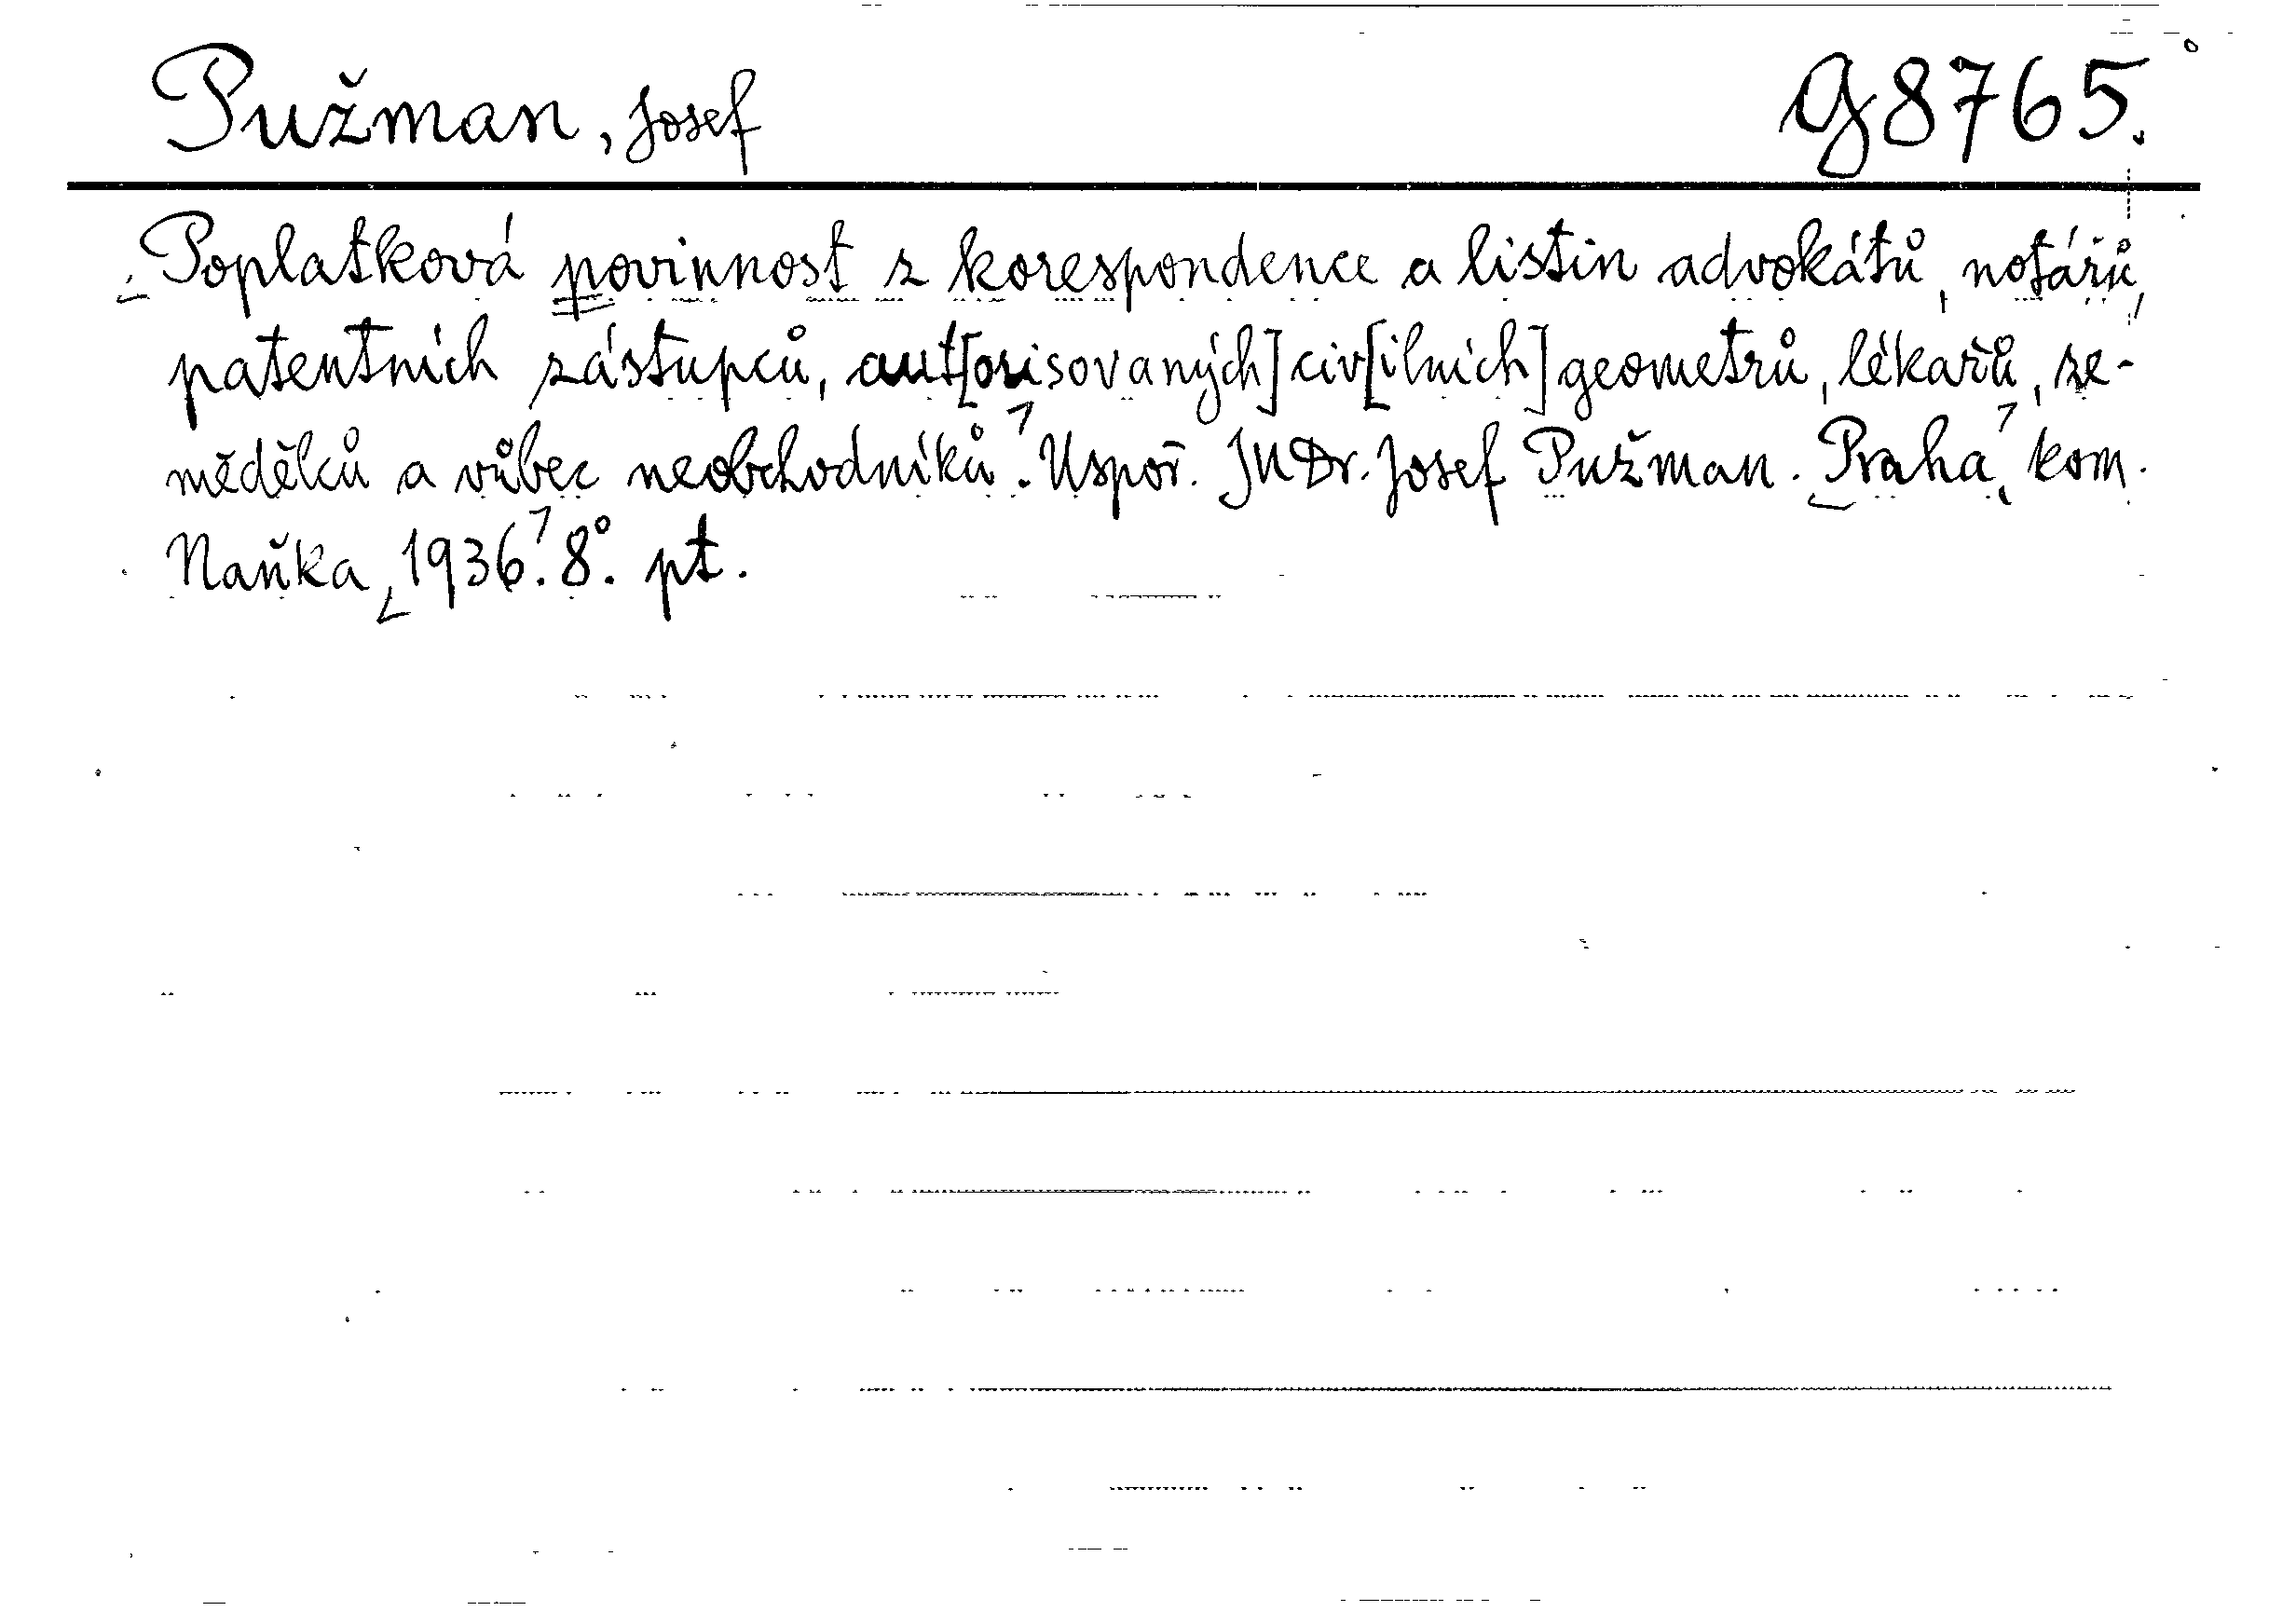 Pužman, Josef
G 8765.
Poplatková povinnost z korespondence a listin advokátů, notářů,
patentních zástupců, aut[orisovaných] civ[ilních] geometrů, lékařů, ze-
mědělců a vůbec neobchodníků. Uspoř. JUDr. Josef Pužman. Praha, kom.
Naňka, 1936. 8°. pt.